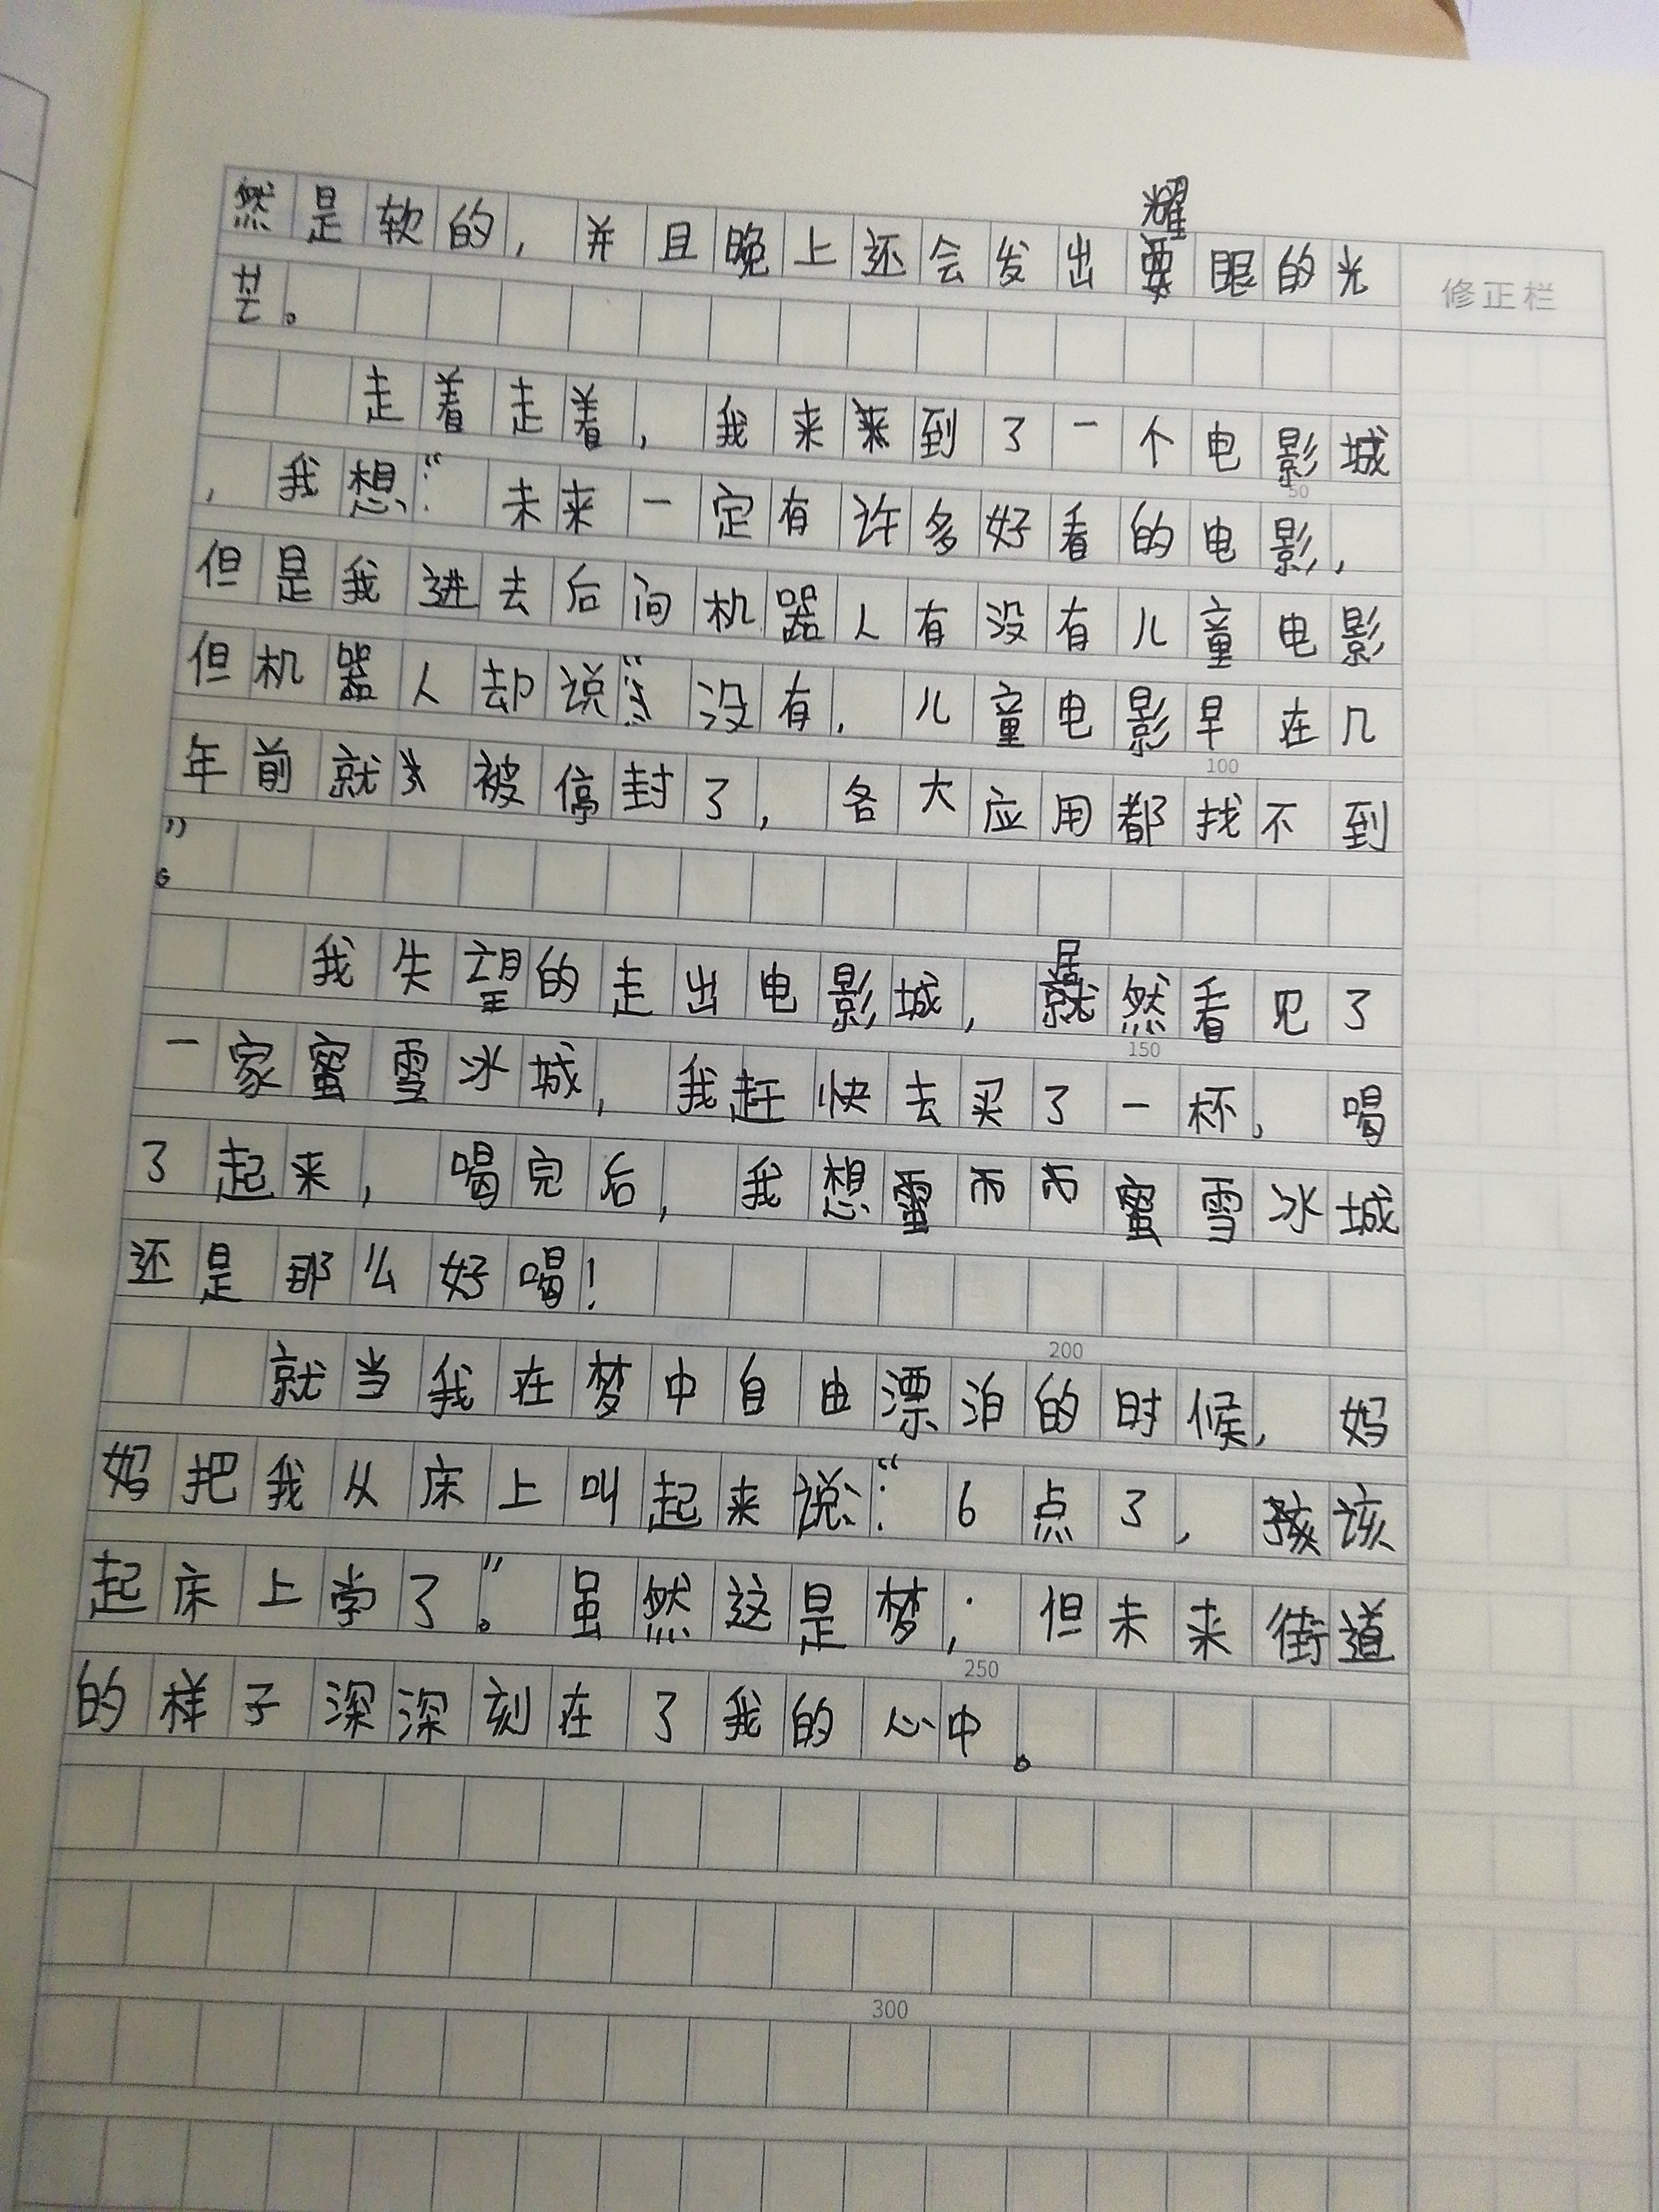 然是软的，并且晚上还会发出耀眼的光
修正栏
芒。
走着走着，我来到了一个电影城
50
，我想：“未来一定有许多好看的电影，
但是我进去后问机器人有没有儿童电影
但机器人却说：“没有，儿童电影早在几
100
年前就被停封了，各大应用都找不到
”。
我失望的走出电影城，居然看见了
150
一家蜜雪冰城，我赶快去买了一杯，喝
了起来，喝完后，我想蜜雪冰城
还是那么好喝！
200
就当我在梦中自由漂泊的时候，妈
妈把我从床上叫起来说：“6点了，该
起床上学了”。虽然这是梦；但未来街道
250
的样子深深刻在了我的心中。
300